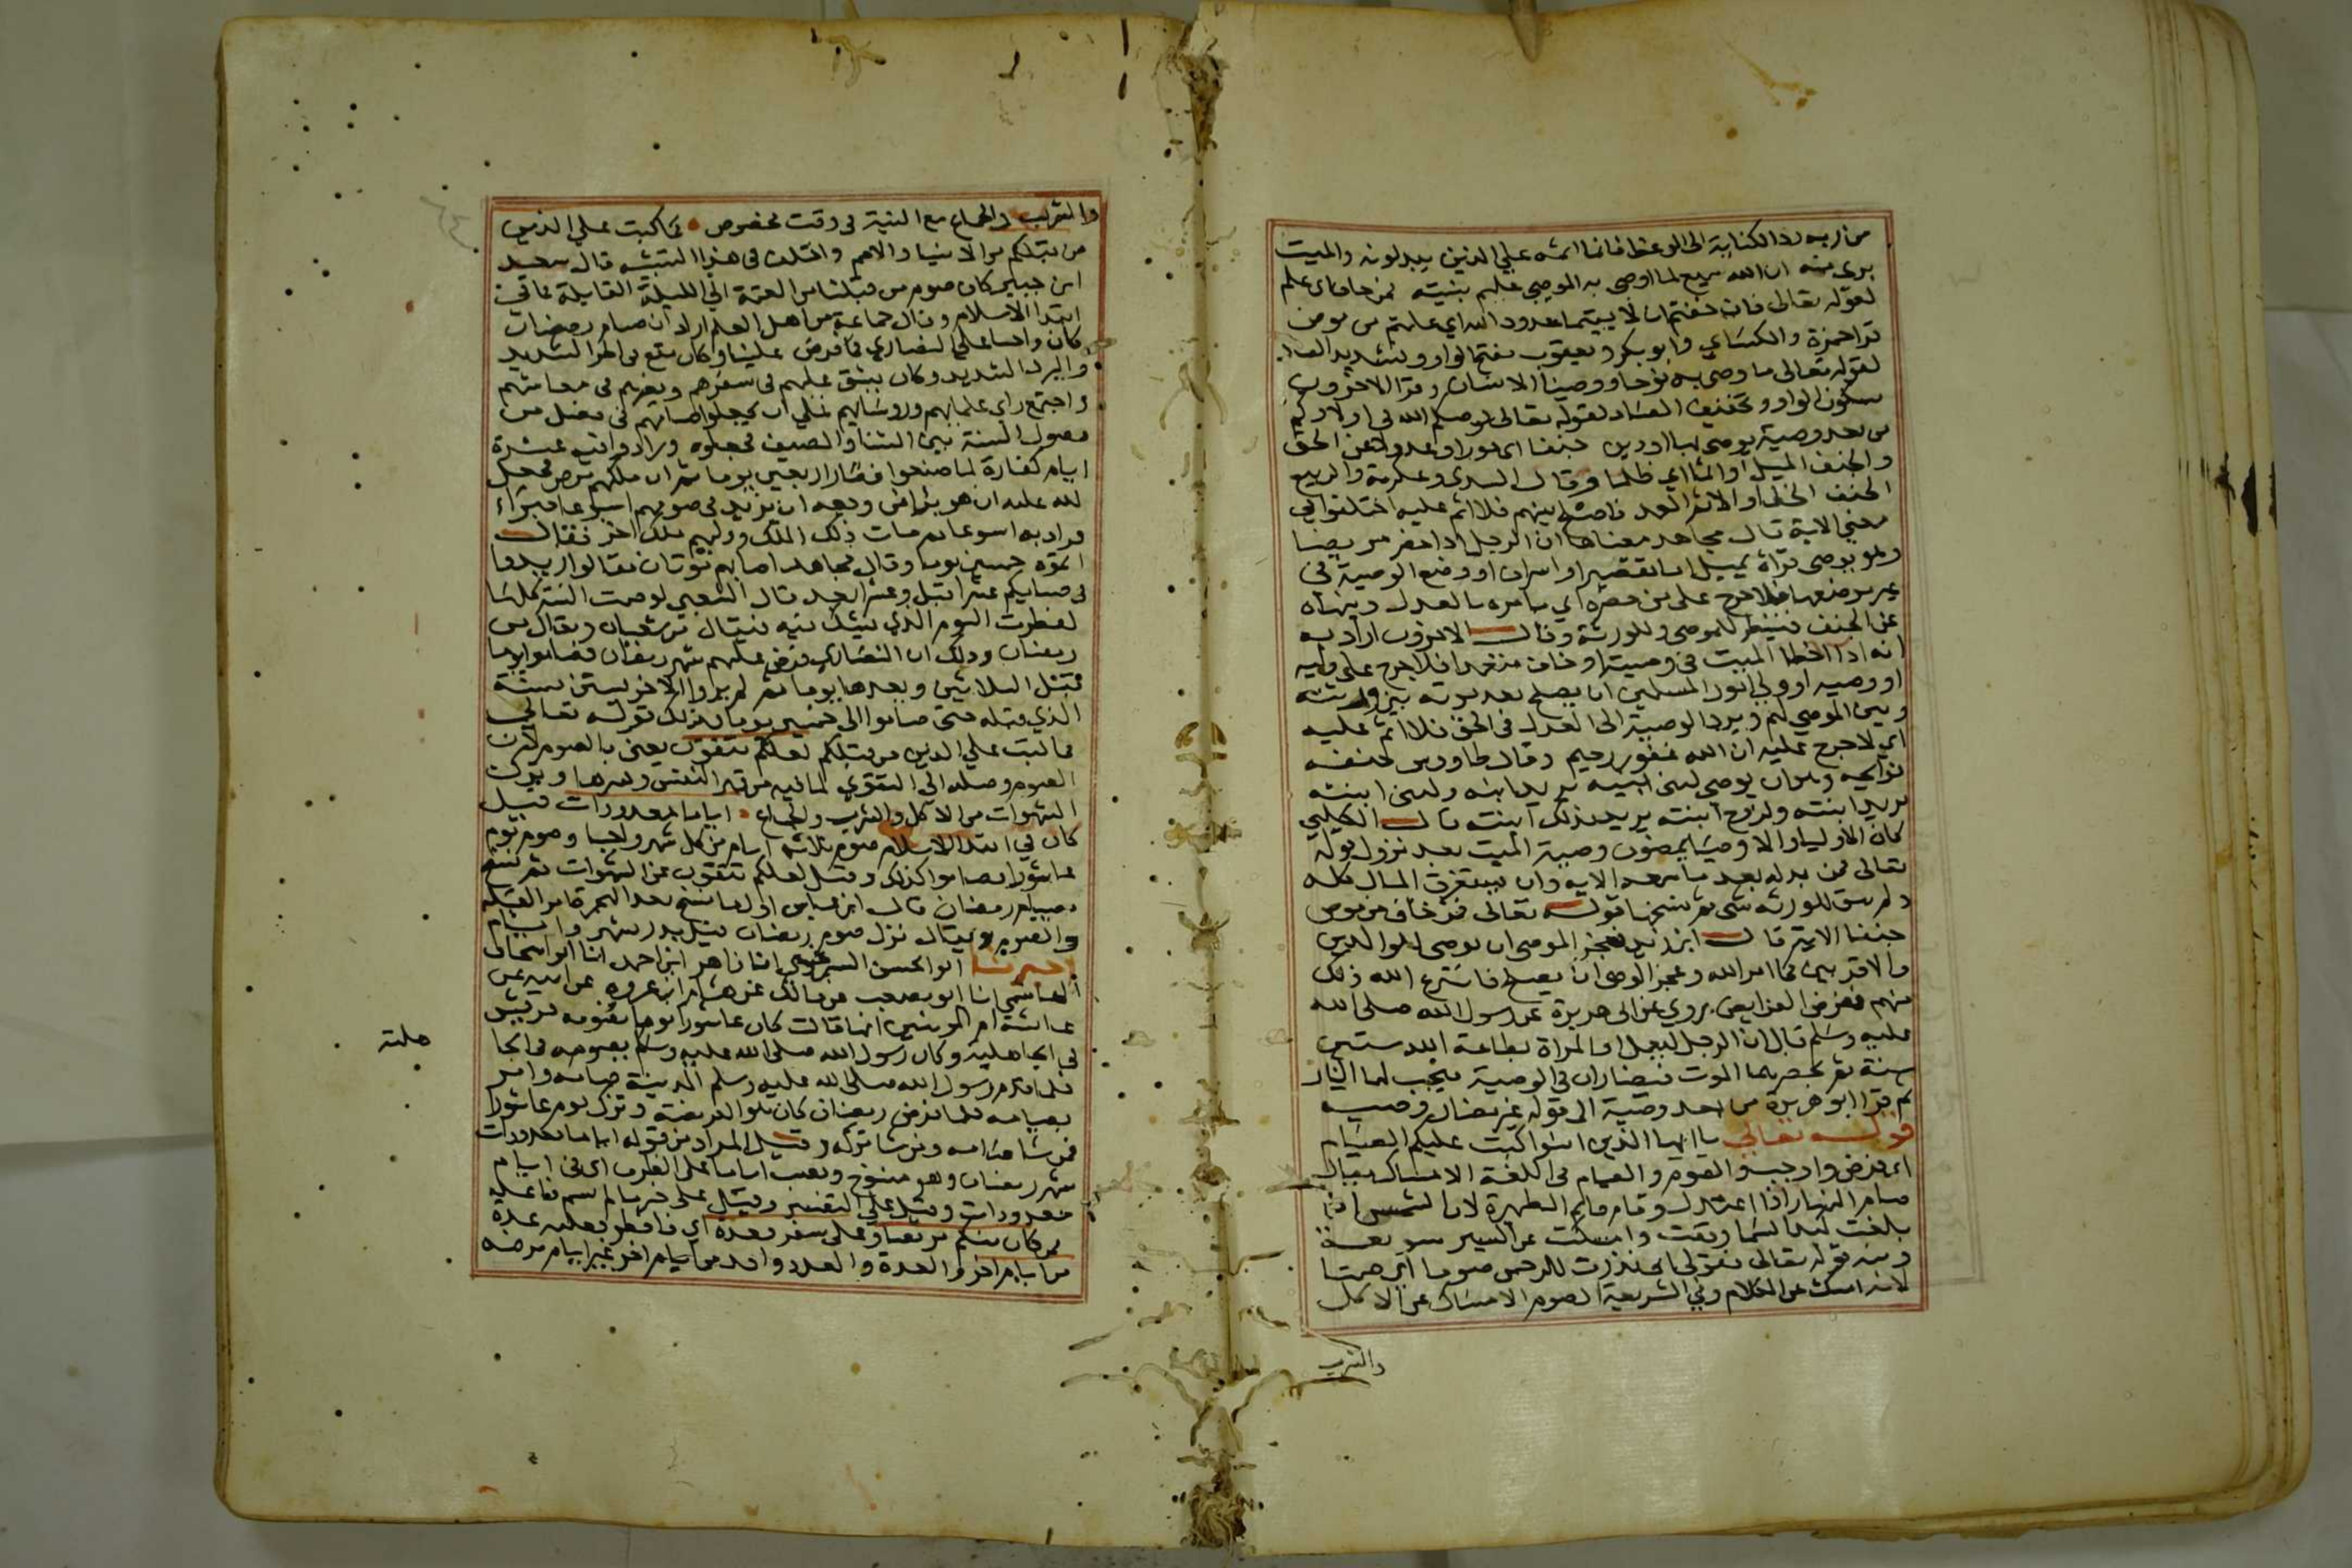 من ربه رد الكناية الى الوعظ فانما اثمه علي الذين يبدلونه والميت
برى منه ان الله سميع لما اوصى به الموصى عليم بنيته فمن خاف اى علم
لقوله تعالى فان خفتم ان لا يقيما حدود الله اي علمتم من موص
قرا حمزة والكساي وابو بكر ويعقوب بفتح الواو وتشديد الصاد
لقوله تعالى ما وصى به نوحا ووصينا الانسان وقرا الاخرون
بسكون الواو وتخفيف الصاد لقوله تعالى يوصيكم الله في اولادكم
من بعد وصية يوصى بها او دين جنفا اى جورا وعدولا عن الحق
والجنف الميل او اثما اي ظلما وقال السدى وعكرمة والربيع
الجنف الخطا والاثم العمد فاصلح بينهم فلا اثم عليه اختلفوا في
معنى الاية قال مجاهد معناها ان الرجل اذا حضر مريضا
وهو يوصى فراه يميل اما بتقصير او اسراف او وضع الوصية في
غير موضعها فلا حرج على من حضره اي يامره بالعدل وينهاه
عن الجنف فينظر للموصى وللورثة وقال الاخرون اراد به
انه اذا اخطا الميت في وصيته او خاف متعمدا فلا حرج على وليه
او وصيه او ولي امور المسلمين ان يصلح بعد موته بين ورثته
وبين الموصي لهم ويرد الوصية الى العدل والحق فلا اثم عليه
اي لا حرج عليه ان الله غفور رحيم وقال طاووس جنفه
توليجه وهو ان يوصى لبنى ابنه يريد ابنه ولبنى ابنته
يريد ابنته ولزوج ابنته يريد بذلك ابنته قال الكلبي
كان الاوليا والاوصيا يمضون وصية الميت بعد نزول قوله
تعالى فمن بدله بعد ما سمعه الايه وان يستغرق المال كله
ولم يبق للورثه شى ثم نسخها قوله تعالى فمن خاف من موص
جنفا الاية قال ابن زيد فعجز الموصى ان يوصى للوالدين
والاقربين كما امر الله وعجز الوصى ان يصلح فانتزع الله ذلك
منهم ففرض الفرايض روي عن ابى هريرة عن رسول الله صلى الله
عليه وسلم قال ان الرجل ليعمل او المراة بطاعة الله ستين
سنة ثم يحضرهما الموت فيضاران في الوصية فيجب لهما النار
ثم قرا ابو هريرة من بعد وصية الى قوله غير مضار وصية
قوله تعالى يا ايها الذين امنوا كتب عليكم الصيام
اى فرض واوجب والصوم والصيام فى اللغة الامساك يقال
صام النهار اذا اعتدل وقام قايم الظهيرة لان الشمس اذا
بلغت كبد السما وقفت وامسكت عن السير سويعة
ومنه قوله تعالى فقولى انى نذرت للرحمن صوما اي صمتا
لانه امسك عن الكلام وفي الشريعة الصوم الامساك عن الاكل
والشرب
والشرب والجماع مع النية فى وقت مخصوص كما كتب علي الذين
من قبلكم من الانبيا والامم واختلف في هذا التشبيه قال سعيد
ابن جبير كان صوم من قبلنا من العتمة الي الليلة القابلة كما في
ابتدا الاسلام وقال جماعة من اهل العلم اراد ان صيام رمضان
كان واجبا على النصاري كما فرض علينا وكان يقع فى الحر الشديد
والبرد الشديد وكان يشق عليهم فى سفرهم ويضرهم في معايشهم
واجتمع راى علمايهم وروسايهم على ان يجعلوا صيامهم في فصل من
فصول السنة بين الشتا والصيف فجعلوه وزادوا فيه عشرة
ايام كفارة لما صنعوا فصار اربعين يوما ثم ان ملكهم مرض فجعل
لله عليه ان هو برا من وجعه ان يزيد في صومهم اسبوعا فبراء
فزاد به اسبوعا ثم مات ذلك الملك ووليهم ملك اخر فقال
اتموه خمسين يوما وقال مجاهد اصابهم موتان فقالوا زيدوا
في صيامكم عشرا قبل وعشرا بعد قال الشعبي لو صمت السنة كلها
لفطرت اليوم الذي يشك فيه فيقال من شعبان ويقال من
رمضان وذلك ان النصارى فرض عليهم شهر رمضان فصاموا يوما
قبل الثلاثين وبعدها يوما ثم لم يزل الاخر يستن بسنة
الذي قبله حتى صاموا الى خمسين يوما فذلك قوله تعالى
كما كتب علي الذين من قبلكم لعلكم تتقون يعنى بالصوم لان
الصوم وصلة الى التقوى لما فيه من قهر النفس وكسرها وترك
الشهوات من الاكل والشرب والجماع اياما معدودات قيل
كان في ابتدا الاسلام صوم ثلاثة ايام من كل شهر واجبا وصوم يوم
عاشورا فصاموا كذلك وقيل لعلكم تتقون عن الشهوات ثم نسخ
بصيام رمضان قال ابن عباس اول ما نسخ بعد الهجرة امر القبلة
والصوم ويقال نزل صوم رمضان قبل بدر بشهر وايام
اخبرنا ابو الحسن السرخسي انا زاهر ابن احمد انا ابو اسحاق
الهاشمي انا ابو مصعب عن مالك عن هشام ابن عروه عن ابيه عن
عايشة ام المومنين انها قالت كان عاشورا يوما تصومه قريش
في الجاهلية وكان رسول الله صلى الله عليه وسلم يصومه في الجا
هلية
فلما قدم رسول الله صلى الله عليه وسلم المدينة صامه وامر
بصيامه فلما فرض رمضان كان هو الفريضة وترك يوم عاشورا
فمن شا صامه ومن شا تركه وقيل المراد من قوله اياما معدودات
شهر رمضان وهو منسوخ ونصب اياما على الظرف اى فى ايام
معدودات وقيل على التفسير وقيل على خبر ما لم يسم فاعله
فمن كان منكم مريضا او على سفر فعدة اي فافطر فعليه عدة
من ايام اخر والعدة والعدد واحد من ايام اخر غير ايام مرضه